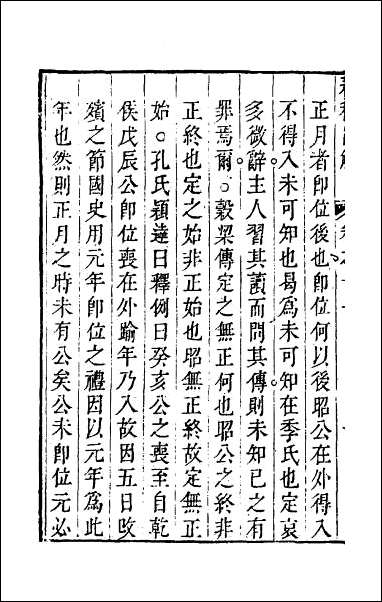 正月者卽位後也卽位何以後昭公在外得入
不得入未可知也曷爲未可知在季氏也定哀
多微辭主人習其讀而問其傳則未知己之有
罪焉爾○穀梁傳定之無正何也昭公之終非
正終也定之始非正始也昭無正終故定無正
始○孔氏穎達曰釋例曰癸亥公之喪至自乾
侯戊辰公卽位喪在外踰年乃入故因五日改
殯之節國史用元年卽位之禮因以元年爲此
年也然則正月之時未有公矣公未卽位元必